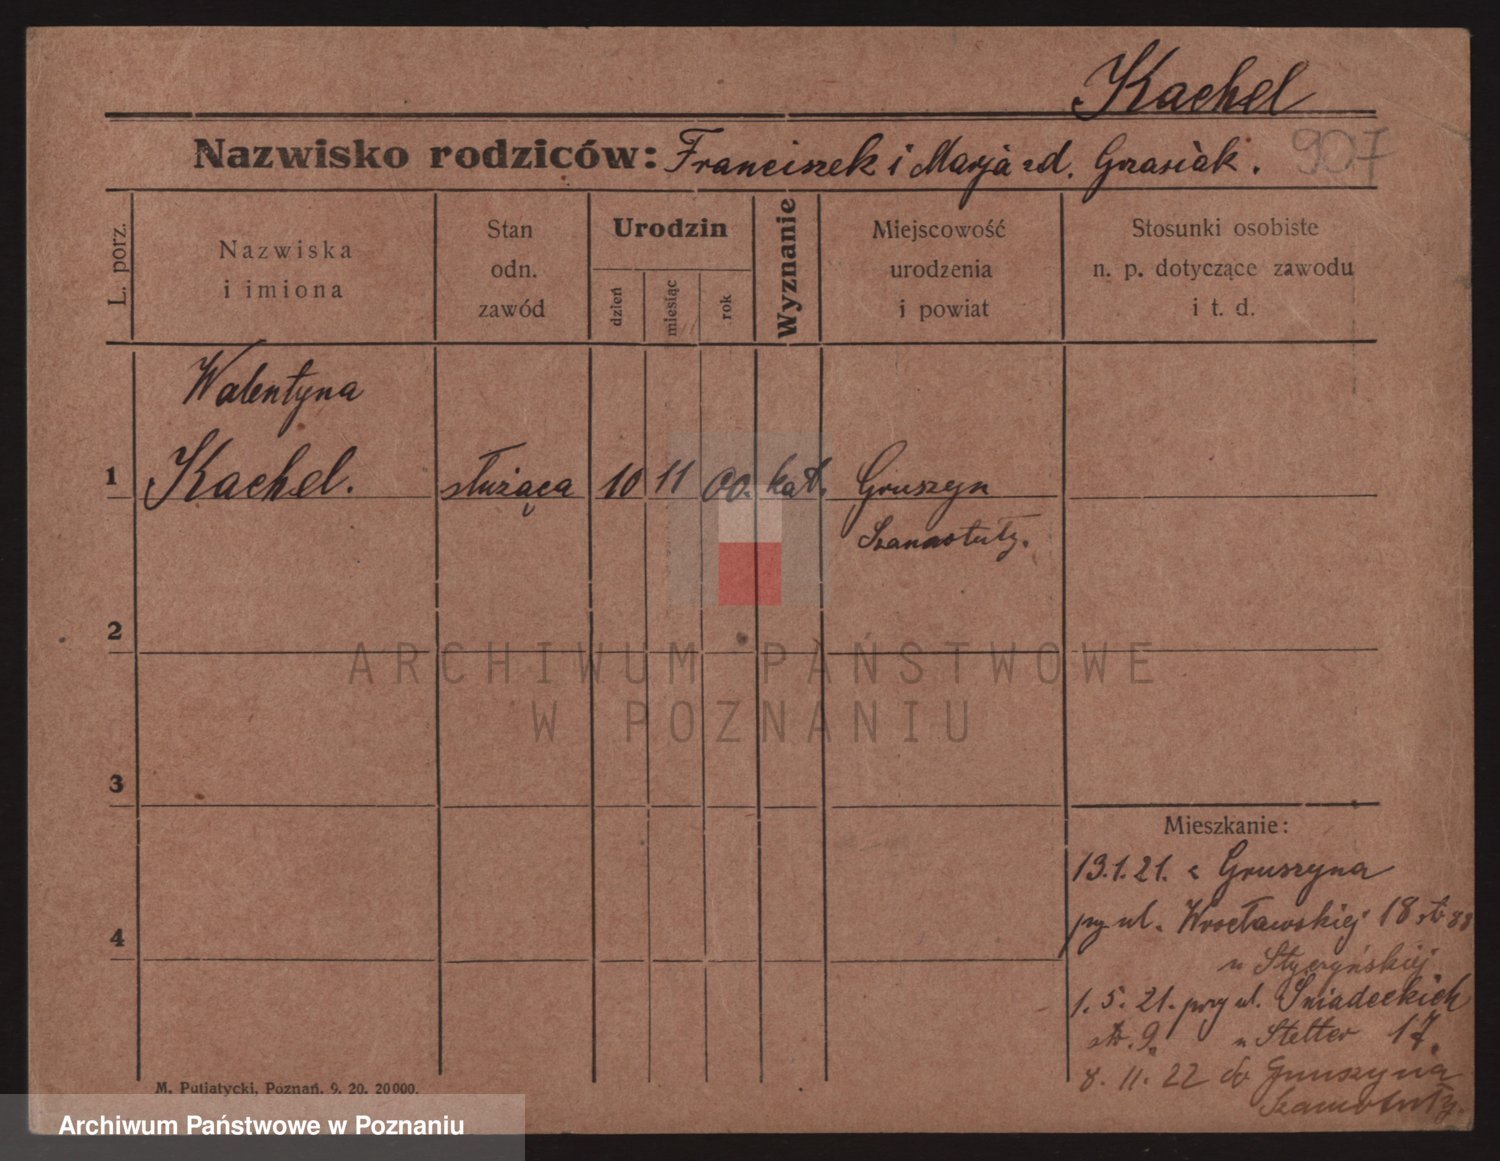 Kachel
Nazwisko rodziców: Franciszek i Marja zd. Grzasiak.
907
L. porz.
Nazwiska
i imiona
Stan
odn.
zawód
Urodzin
dzień
miesiąc
rok
Wyznanie
Miejscowość
urodzenia
i powiat
Stosunki osobiste
n. p. dotyczące zawodu
i t. d.
Walentyna
1 Kachel. służąca 10 11 00. kat. Gruszyn
Szamotuły.
2
ARCHIWUM PAŃSTWOWE
W POZNANIU
3
Mieszkanie:
13.1.21. z Gruszyna
4 przy ul. Wrocławskiej 18
u
1. 5. 21. przy ul. Śniadeckich
9. u Stetter 17.
8. 11. 22 do Gruszyna
Szamotuły.
M. Putiatycki, Poznań. 9. 20. 20000.
Archiwum Państwowe w Poznaniu